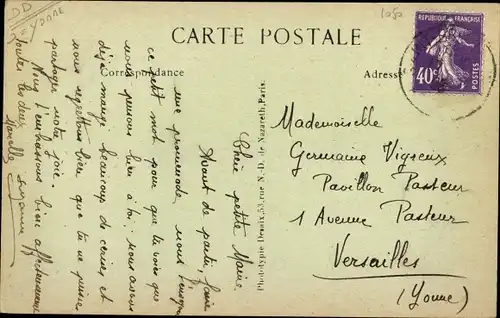 DD
YONNE
1080
CARTE POSTALE
Correspondance
Adresse
REPUBLIQUE FRANÇAISE
40c
POSTES
Chère petite Marie
Avant de partir, faire
une promenade nous t'envoyons
ce petit mot pour que tu vois que
nous pensons bien à toi. nous avons
déjà mangé beaucoup de cerises et
nous regrettons bien que tu ne puisse
partager notre joie.
Nous t'embrassons bien affectueusement
toutes les deux
Marcelle Suzanne
Phototypie Desaix, 53, rue N.-D. de Nazareth, Paris.
Mademoiselle
Germaine Vigreux
Pavillon Pasteur
1 Avenue Pasteur
Versailles
(Yonne)